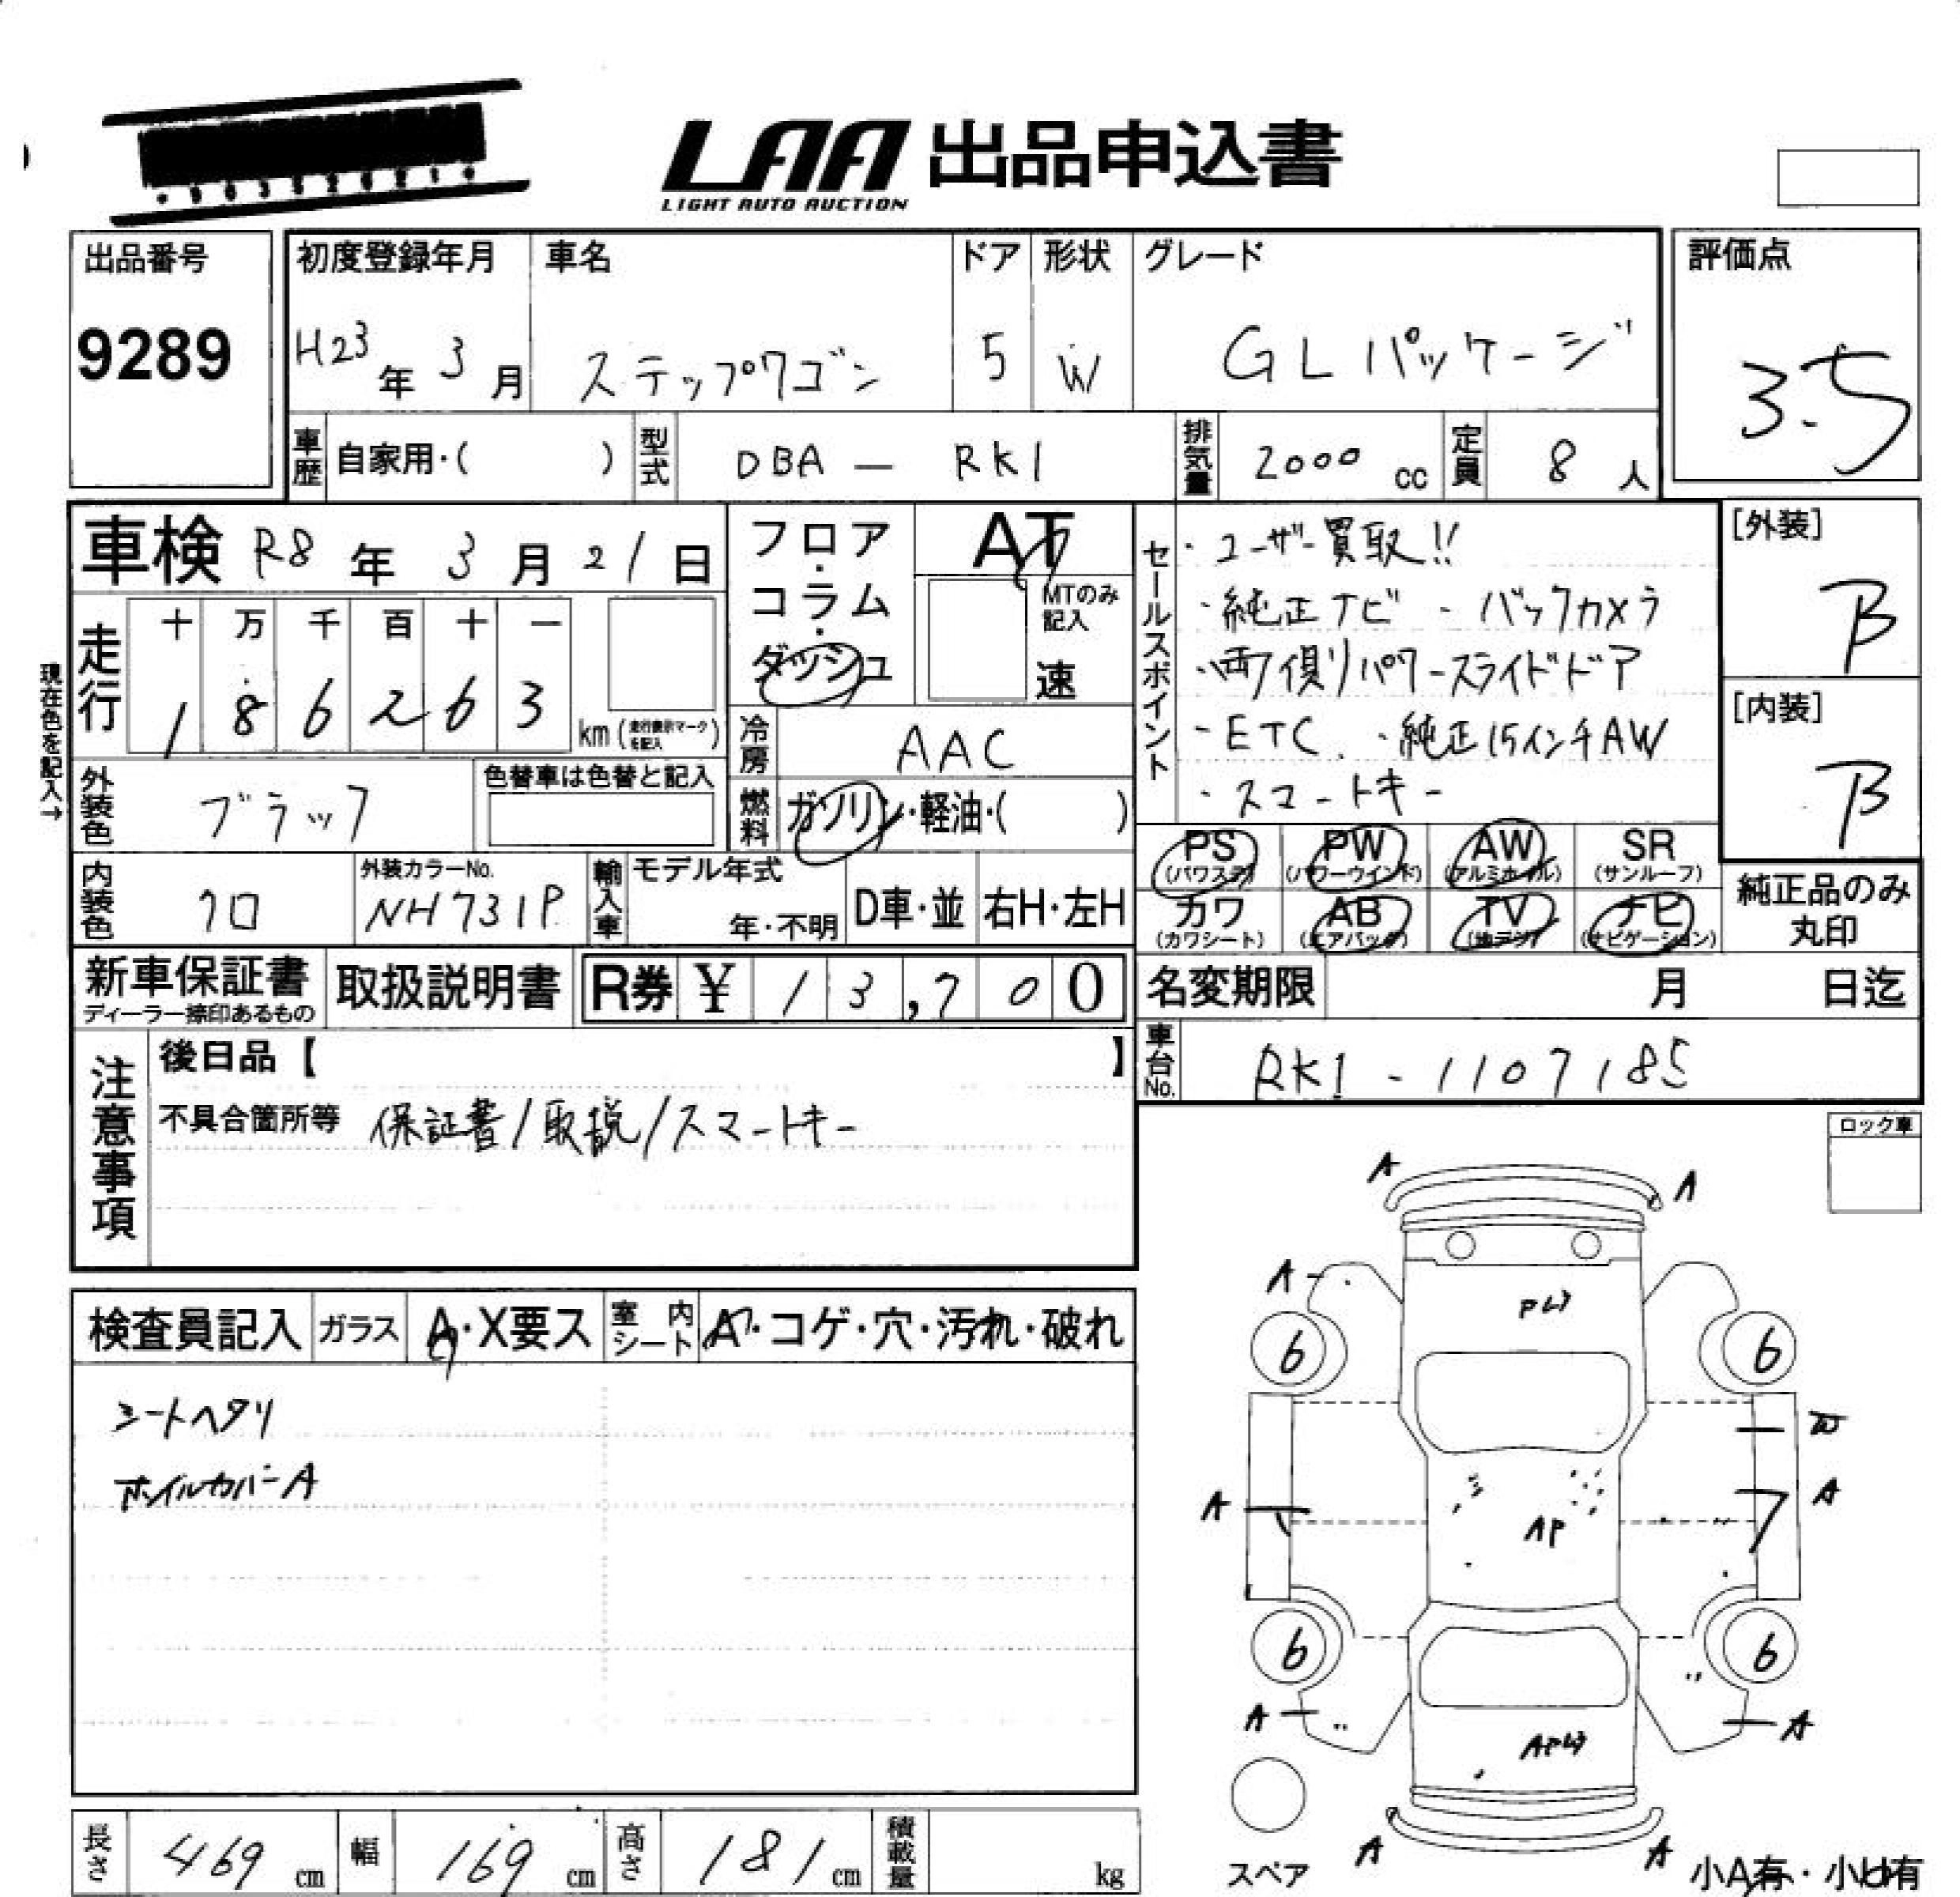 LAA 出品申込書
LIGHT AUTO AUCTION
出品番号
9289
初度登録年月
H23年 3月
車名
ステップワゴン
ドア
5
形状
W
グレード
GLパッケージ
評価点
3.5
車歴 自家用・( )
型式 DBA — RK1
排気量 2000 cc
定員 8 人
車検 R8年 3月 21日
走行
十 万 千 百 十 一
1 8 6 2 6 3
km(走行表示マークを記入)
現在色を記入→
外装色 ブラック
色替車は色替と記入
内装色 クロ
外装カラーNo.
NH731P
フロア・コラム・ダッシュ
AT
MTのみ記入
速
冷房 AAC
燃料 ガソリン・軽油・( )
輸入車 モデル年式
年・不明
D車・並
右H・左H
セールスポイント
・ユーザー買取!!
・純正ナビ ・バックカメラ
・両側パワースライドドア
・ETC ・純正15インチAW
・スマートキー
[外装]
B
[内装]
B
PS
(パワステ)
PW
(パワーウインド)
AW
(アルミホイル)
SR
(サンルーフ)
カワ
(カワシート)
AB
(エアバック)
TV
(地デジ)
ナビ
(ナビゲーション)
純正品のみ
丸印
新車保証書
ディーラー捺印あるもの
取扱説明書
R券 ¥ 13,700
名変期限 月 日迄
車台No. RK1-1107185
注意事項
後日品【 】
不具合箇所等 保証書/取説/スマートキー
ロック車
検査員記入
ガラス A・X要ス
室内シート A・コゲ・穴・汚れ・破れ
シートヘタリ
ホイルカバーA
A
A
A
PU
6
6
W
A
A
AP
6
6
A
A
APU
スペア
A
A
小A有・小U有
長さ 469 cm
幅 169 cm
高さ 181 cm
積載量 kg